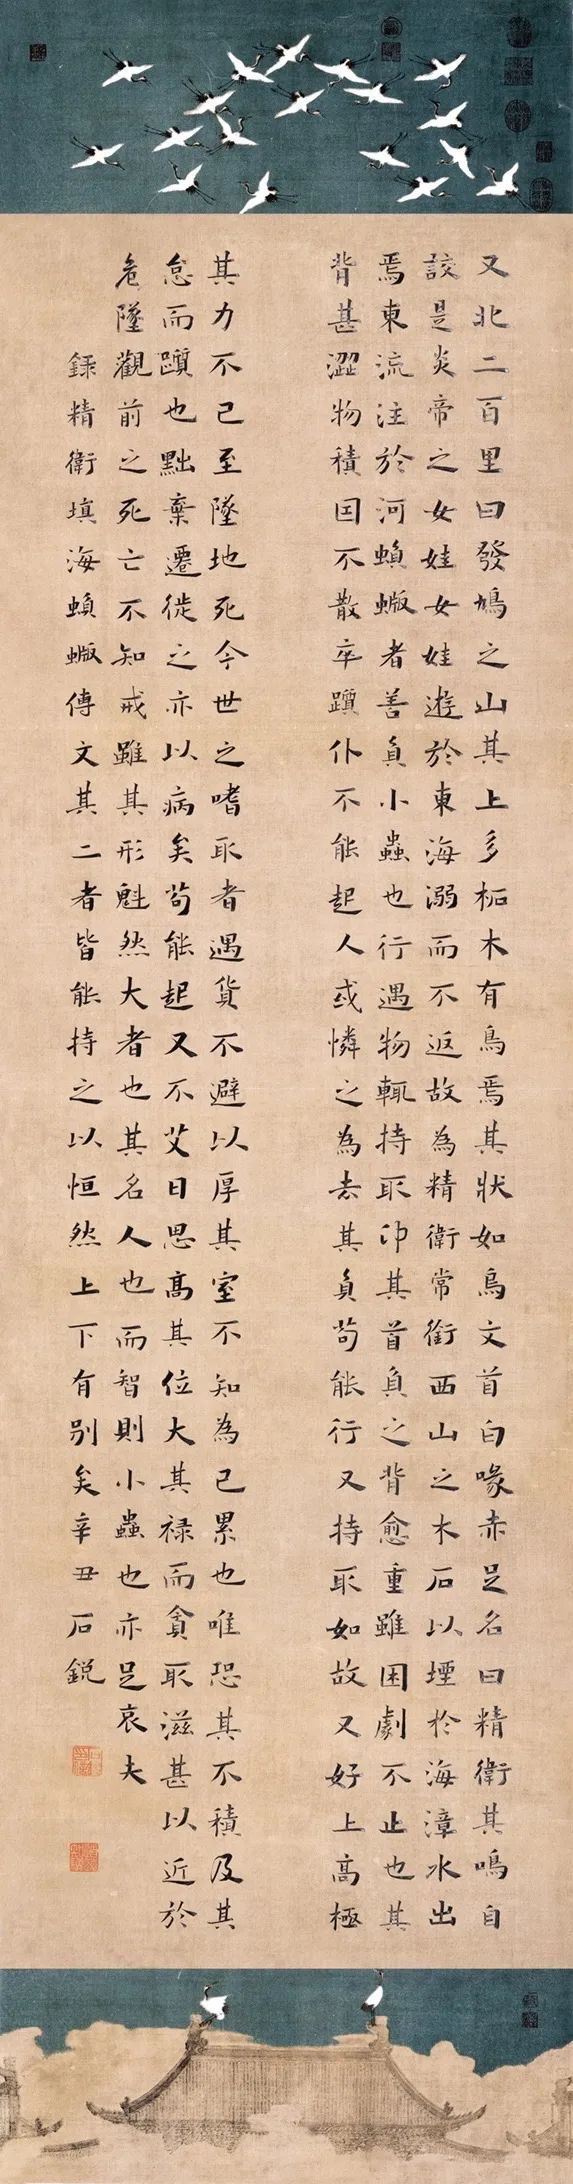 又北二百里曰發鳩之山其上多柘木有鳥焉其狀如烏文首白喙赤足名曰精衛其鳴自
詨是炎帝之女娃女娃遊於東海溺而不返故為精衛常銜西山之木石以堙於海漳水出
焉東流注於河蝜蝂者善負小蟲也行遇物輒持取卬其首負之背愈重雖困劇不止也其
背甚澀物積因不散卒躓仆不能起人或憐之為去其負苟能行又持取如故又好上高極
其力不已至墜地死今世之嗜取者遇貨不避以厚其室不知為己累也唯恐其不積及其
怠而躓也黜棄遷徙之亦以病矣苟能起又不艾日思高其位大其祿而貪取滋甚以近於
危墜觀前之死亡不知戒雖其形魁然大者也其名人也而智則小蟲也亦足哀夫
錄精衛填海蝜蝂傳文其二者皆能持之以恒然上下有別矣辛丑石銳